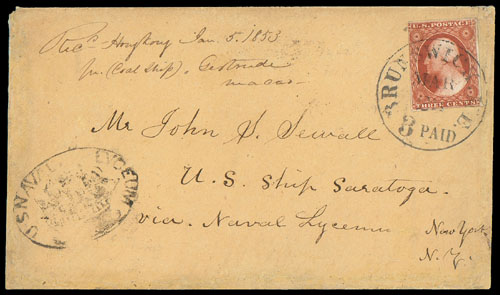 Rec'd Hong Kong Jan. 5. 1853
pr. (Coal ship). Gertrude
macao
U.S. POSTAGE
THREE CENTS
BRUNSWICK
MAR
3 PAID
Mr John S. Sewall
U.S. Ship Saratoga.
via. Naval Lyceum
New York
N.Y.
U.S. NAVAL LYCEUM